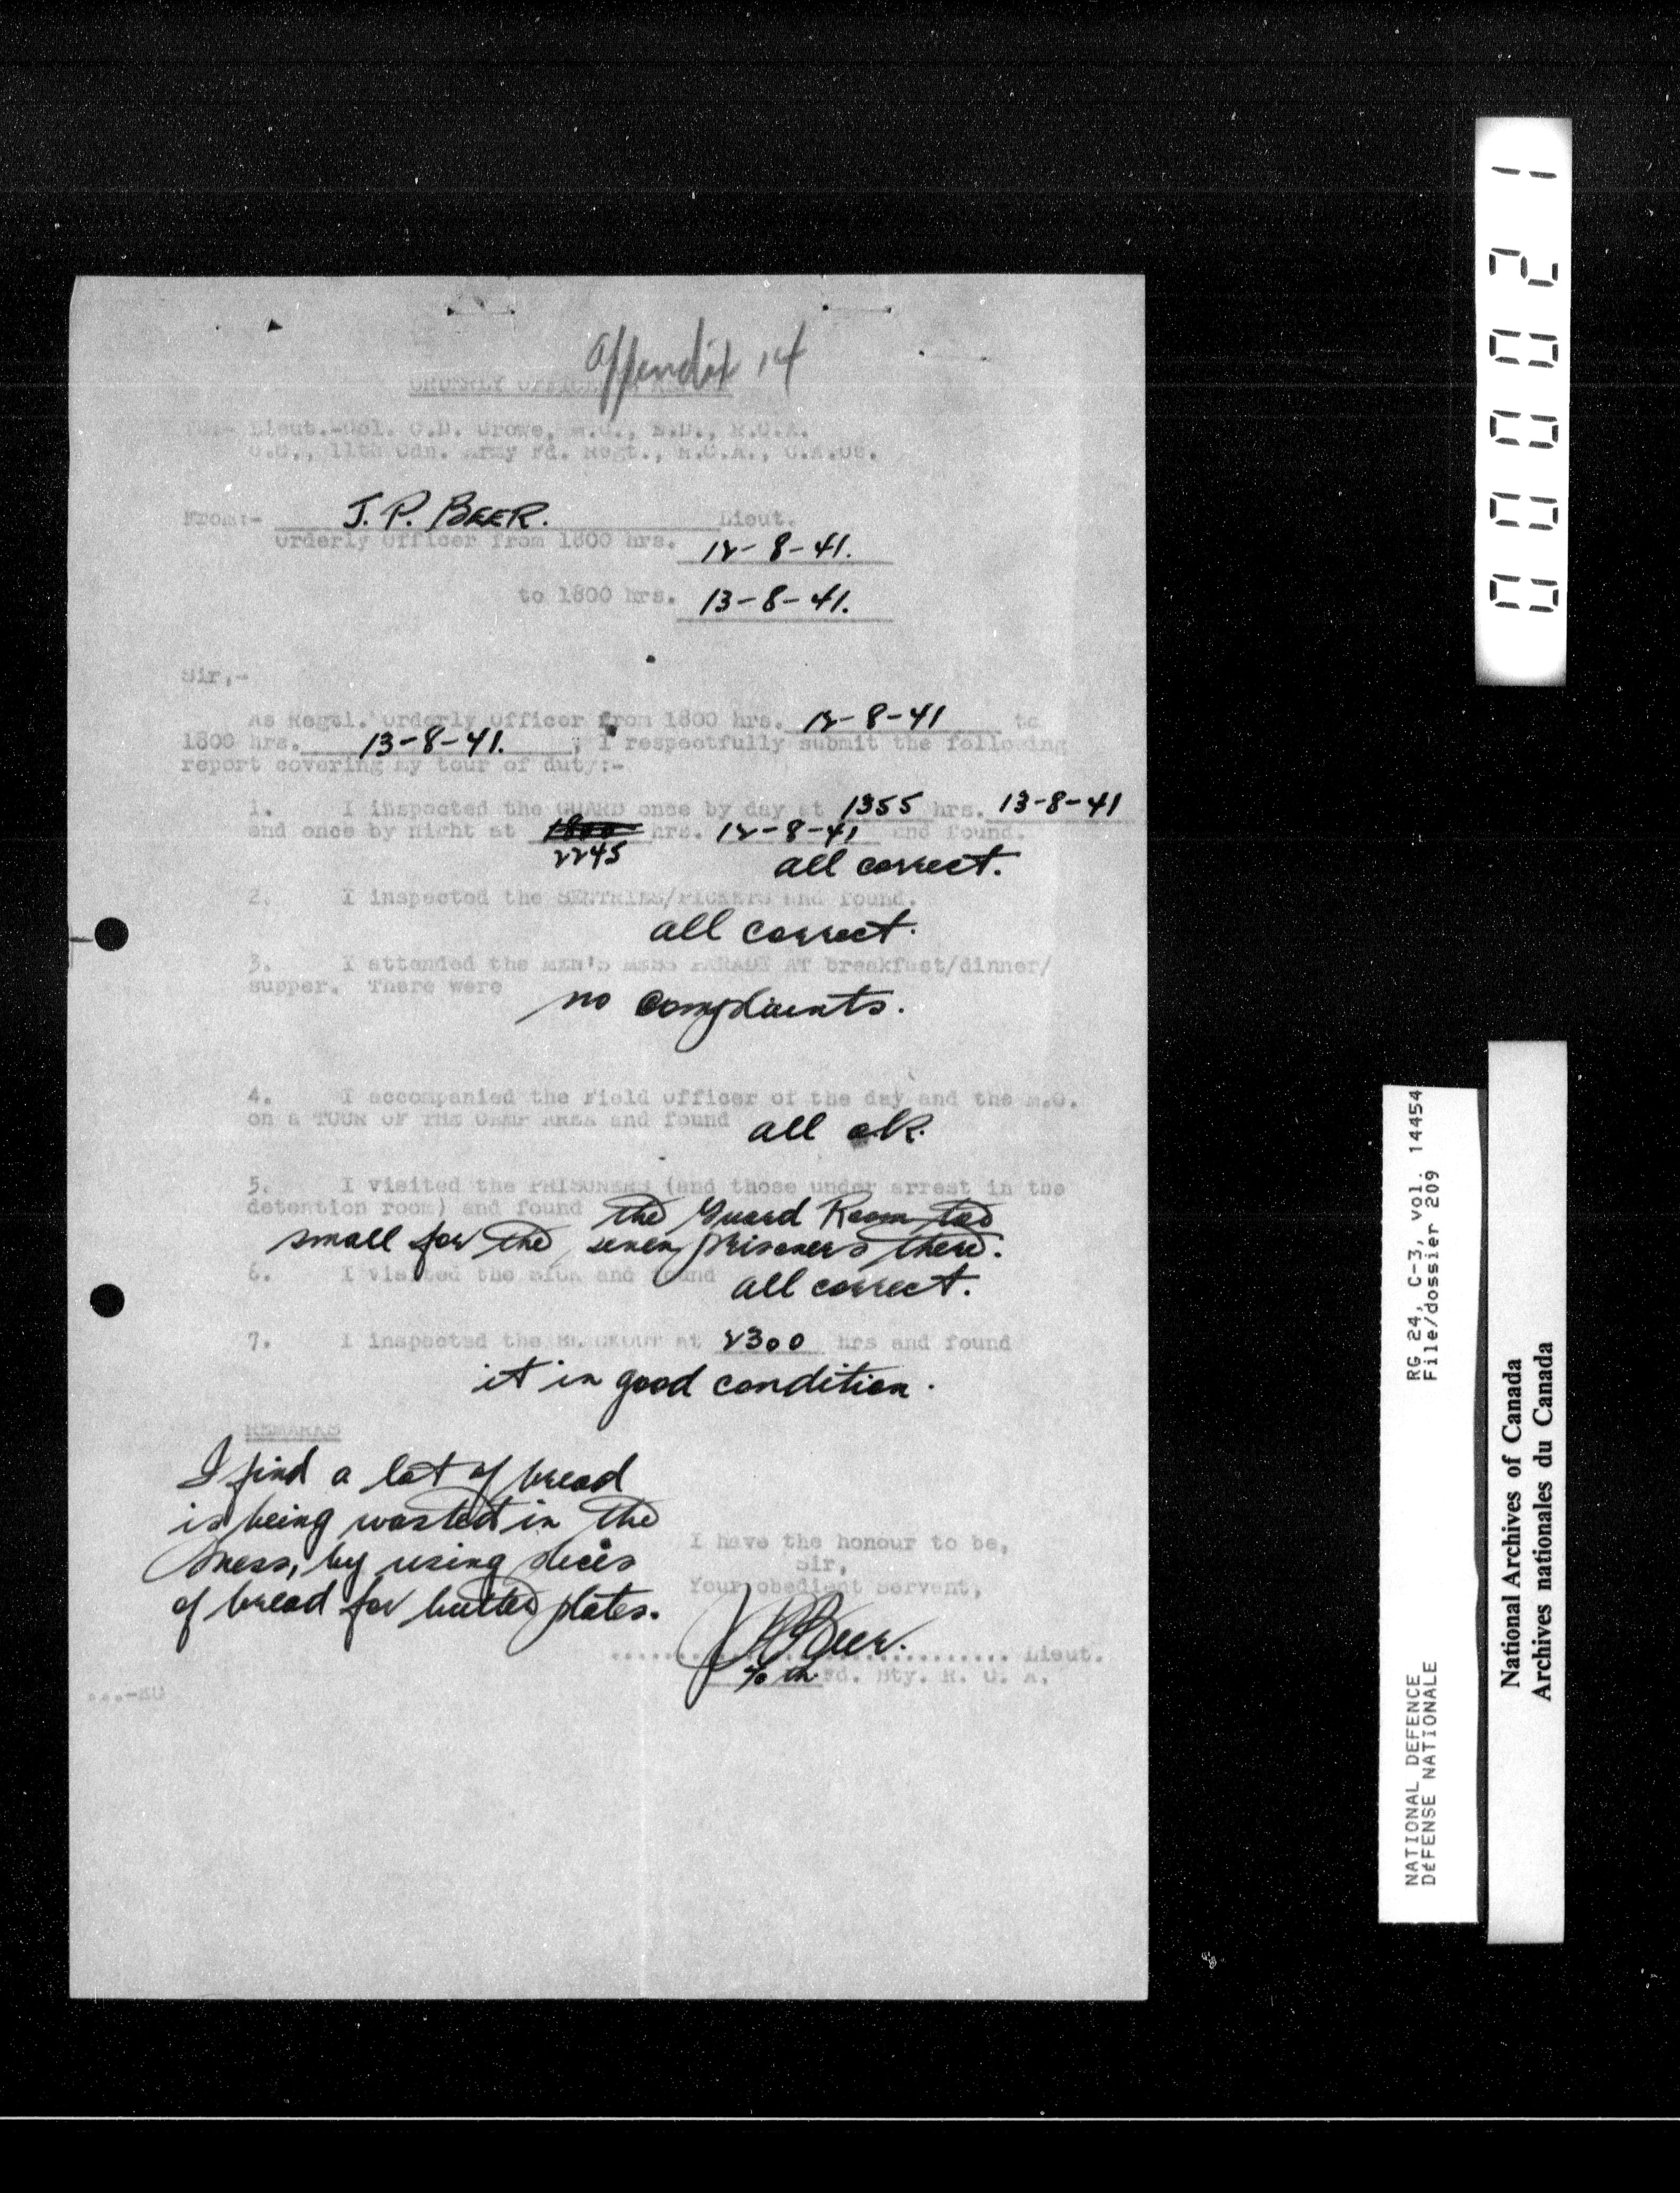 Appendix 14
ORDERLY OFFICER
To:- Lieut.-Col. C.D. Crowe, M.C., E.D., R.C.A.
O.C., 11th Cdn. Army Fd. Regt., R.C.A., C.A.OS.
From:- J. P. BEER. Lieut.
Orderly Officer from 1800 hrs. 12-8-41.
to 1800 hrs. 13-8-41.
Sir,-
As Regtl. Orderly Officer from 1800 hrs. 12-8-41 to
1800 hrs. 13-8-41. , I respectfully submit the following
report covering my tour of duty:-
1. I inspected the GUARD once by day at 1355 hrs. 13-8-41
and once by night at 1800 hrs. 12-8-41 and found.
2245 all correct.
2. I inspected the SENTRIES/PICKETS and found.
all correct.
3. I attended the MEN'S MESS PARADE AT breakfast/dinner/
supper. There were
no complaints.
4. I accompanied the Field Officer of the day and the M.O.
on a TOUR OF THE CAMP AREA and found all ok.
5. I visited the PRISONERS (and those under arrest in the
detention room) and found the Guard Room too
small for the seven prisoners there.
6. I visited the SICK and found all correct.
7. I inspected the BLACKOUT at 2300 hrs and found
it in good condition.
REMARKS
I find a lot of bread
is being wasted in the
mess, by using slices
of bread for butter plates.
I have the honour to be,
Sir,
Your obedient Servant,
JPBeer. Lieut.
Fd. Bty. R. C. A.
000021
RG 24, C-3, vol. 14454
File/dossier 209
NATIONAL DEFENCE
DÉFENSE NATIONALE
National Archives of Canada
Archives nationales du Canada